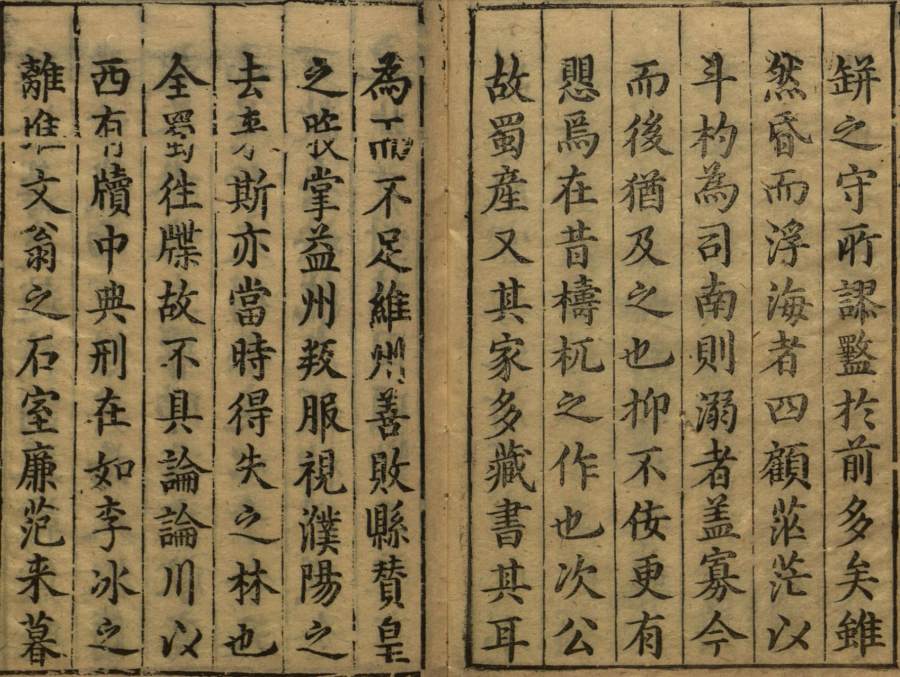 缾之守所謬盭於前多矣雖
然昏而浮海者四顧茫茫以
斗杓為司南則溺者盖寡今
而後猶及之也抑不佞更有
思焉在昔檮杌之作也次公
故蜀產又其家多藏書其耳
為 而不足維州善敗縣賛皇
之 掌益州叛服視濮陽之
去 斯亦當時得失之林也
全蜀徃牒故不具論論川以
西有牘中典刑在如李冰之
離堆文翁之石室廉范来暮